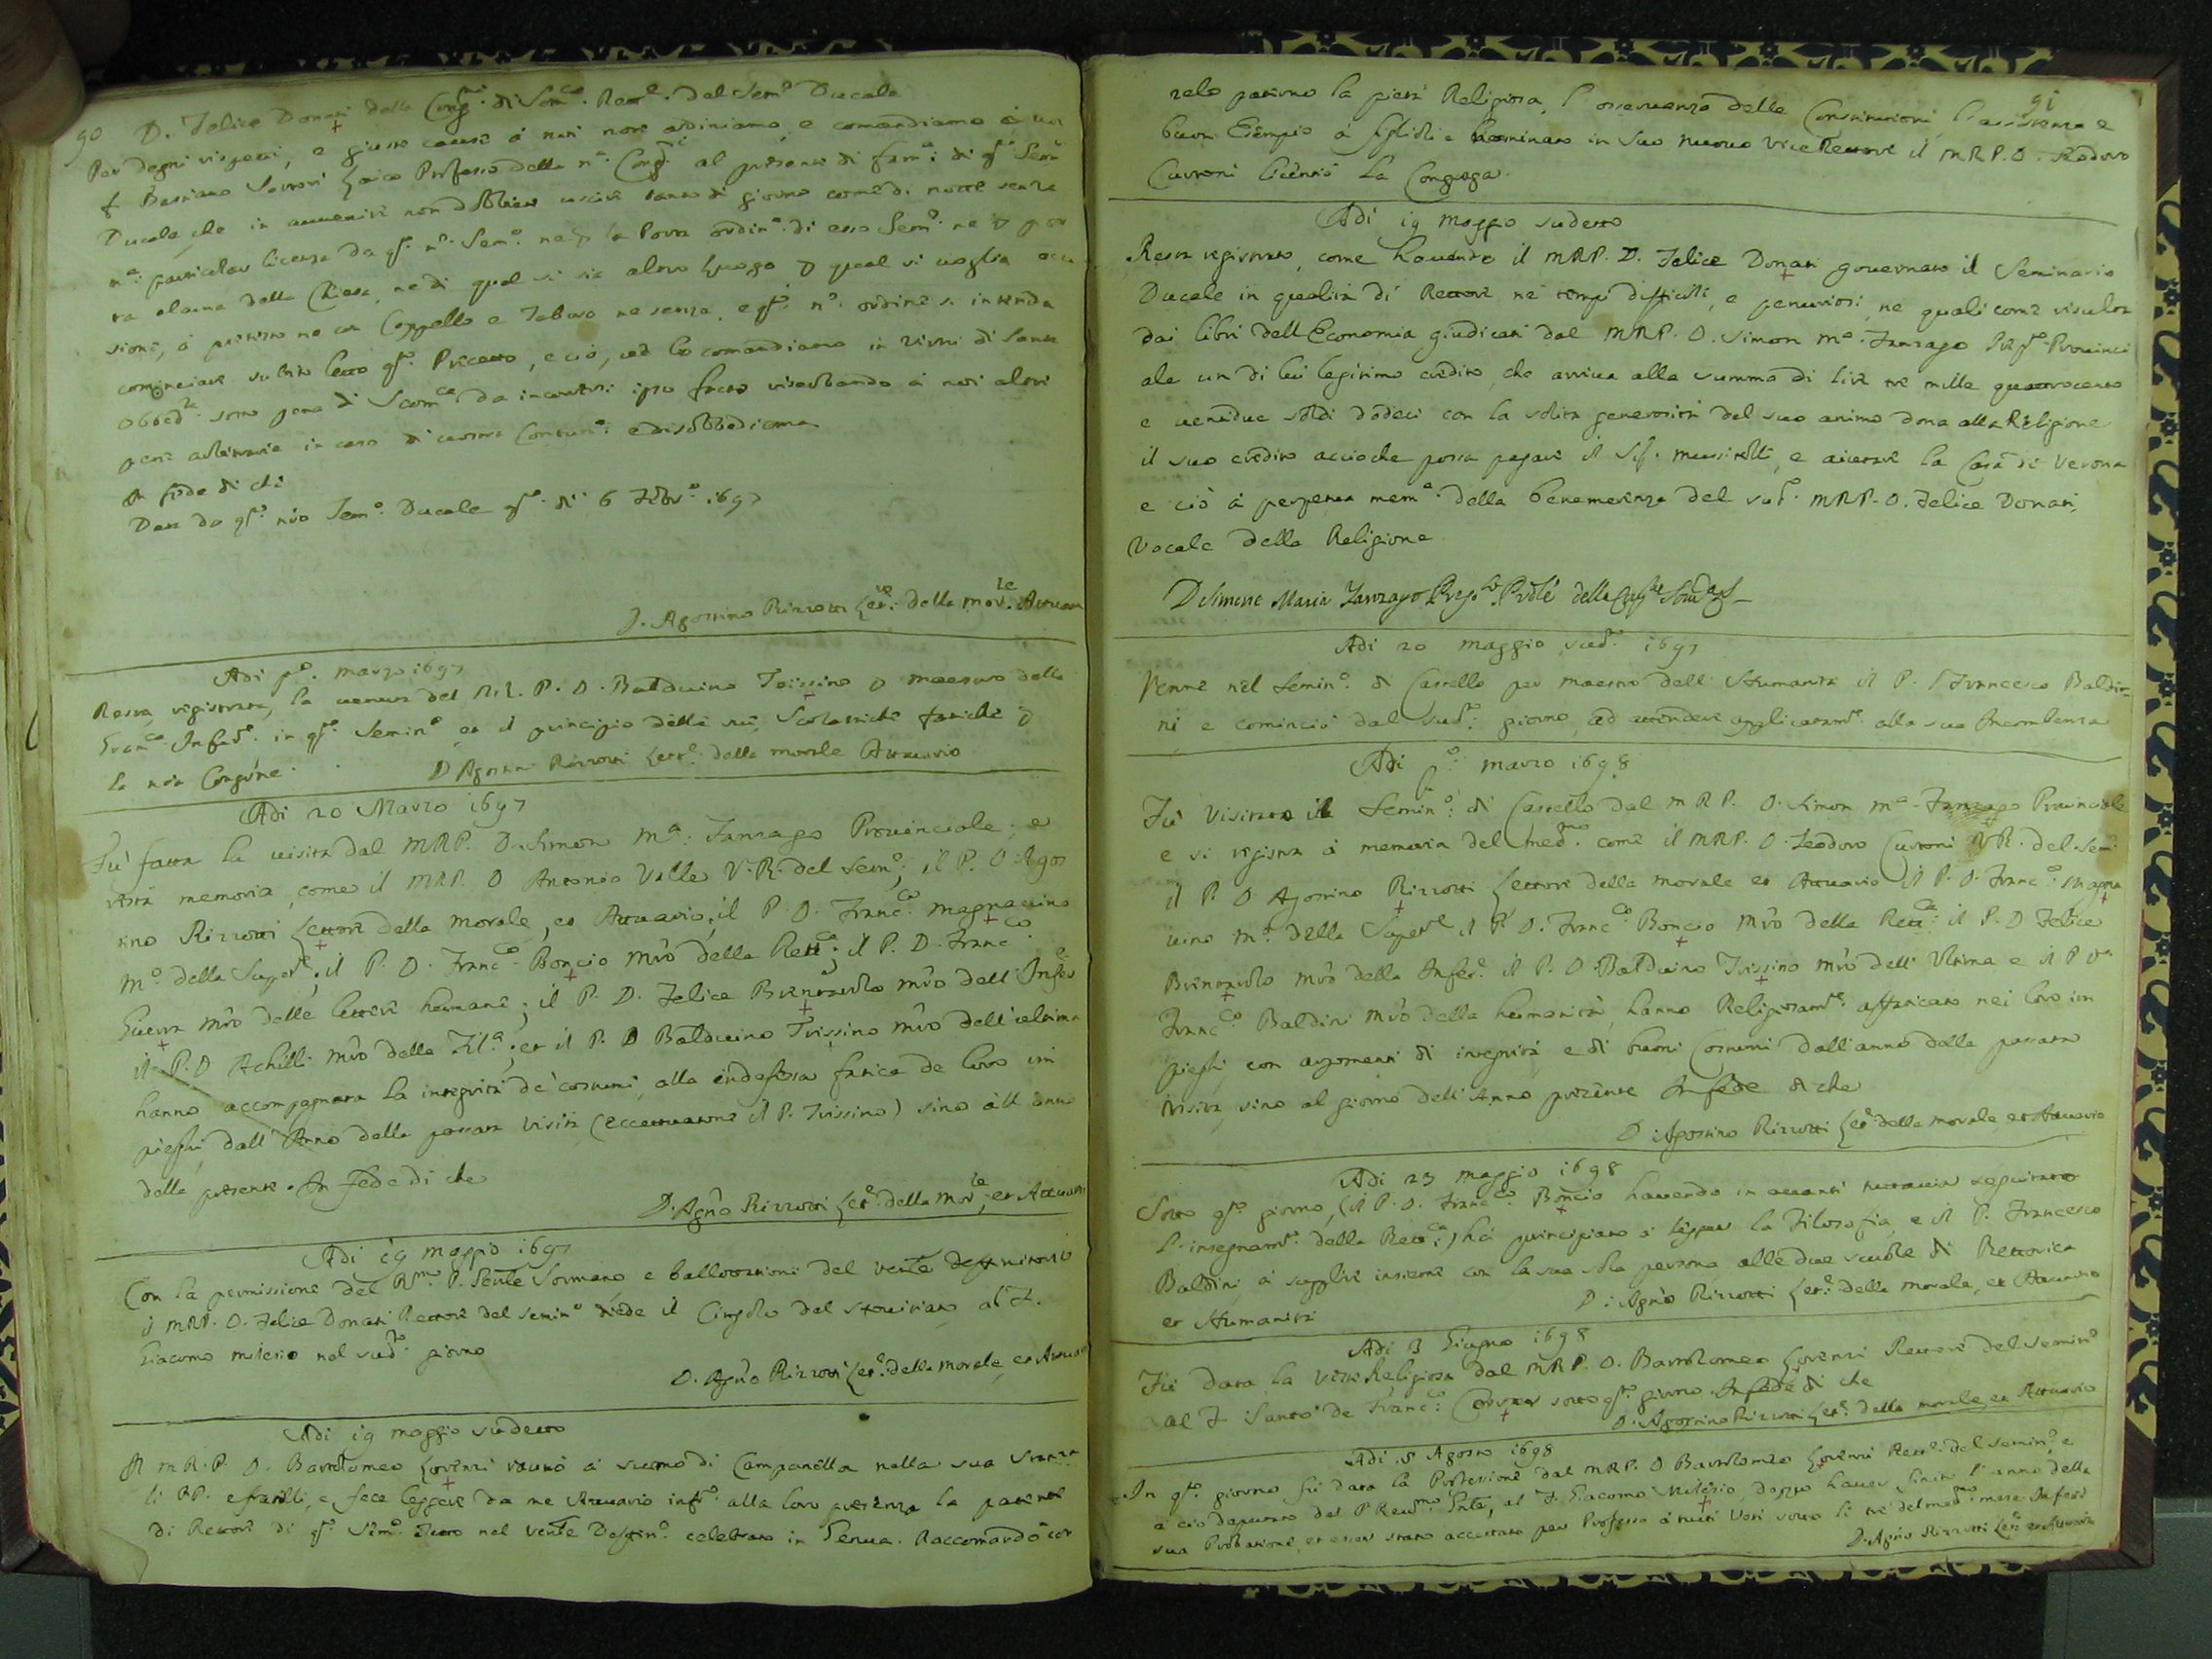 90 D. Felice Donati della Cong.ne di Som.ca Rett.e del Sem.o Ducale
Per degni rispetti, e giuste cause à noi note ordiniamo, e comandiamo à voi
f. Bastiano Laico Professo della n.a Cong.e al presente di fam.a di q.to Sem.o
Ducale, che in avvenire non dobbiate uscire tanto di giorno come di notte senza
n.a particolar licenza da q.to n.o Sem.o ne p la Porta ordin.a di esso Sem.o ne p por
ta alcuna della Chiesa, ne di qual si sia altro luogo p qual si voglia occa
sione, ò pretesto ne con Cappello e Tabaro ne senza, e q.to n.o ordine s'intenda
cominciare subito letto q.to Precetto, e ciò, ve lo comandiamo in virtù di Santa
Obbed.za sotto pena di Scom.ca da incorrersi ipso facto riserbando à noi altre
pene arbitrarie in caso di vostra Contum.a e disobbedienza
In fede di che
Dat. da q.to n.ro Sem.o Ducale q.to dì 6 Febr.o 1697
D. Agostino Rizzotti Let.re della mor.le Attuario
Adi p.o marzo 1697
Resta registrata, la venuta del M.R.P.D. Balduino Trissino p maestro della
Gram.ca Infer.e in q.to Semin.o et il principio delle sue Scolastiche fatiche p
la n.ra Cong.ne D Agostin Rizzotti Lett.e della morale Attuario
Adi 20 Marzo 1697
Fù fatta la visita dal M.R.P. D. Simon M.a Zanzago Provinciale, e
resta memoria, come il M.R.P. D Antonio Valle V.R. del Sem.o; il P. D. Agos
tino Rizzotti Lettore della morale, et Attuario; il P. D. Franc.co Magnavino
M.o della Super.e; il P. D. Franc.co Boncio M.ro della Rett.ca; il P. D. Franc.co
Guerra M.ro delle lettere humane; il P. D. Felice Brentarolo M.ro dell'Infer.e
il P. D Achilli M.ro della Fil.a; et il P. D Balduino Trissino M.ro dell'ultima
hanno accompagnata la integrità de' costumi, alla indefessa fatica de loro im
pieghi dall'Anno della passata visita (eccettuatone il P. Trissino) sino all'anno
della presente. In fede di che
D. Ag.no Rizzotti Let.e della mor.le, et Attuario
Adi 19 maggio 1697
Con la permissione del R.mo P. G.nle Sormano, e ballottazioni del Ven.le Deffinitorio
il M.R.P. D. Felice Donati Rettore del Semin.o diede il Cingolo del Novitiato al F.
Giacomo Milesio nel sud.to giorno
D. Ag.no Rizzotti Let.e della morale, et Attuario
Adi 19 maggio sudetto
Il M.R.P. D. Bartolomeo Lorenzi raunò à suono di Campanella nella sua stanza
li PP. e fratelli, e fece leggere da me Attuario inf.to alla loro presenza la patente
di Rettore di q.to Sem.o fatto nel Ven.le Deffin.o celebrato in Genua. Raccomandò con
91
zelo paterno la pietà Religiosa, l'osservanza delle Constitutioni, l'assistenza e
buon Esempio a Figlioli e nominato in suo nuovo Vice Rettore il M.R.P. D. Teodoro
Cutroni licentiò la Congrega.
Adi 19 maggio sudetto
Resta registrato, come havendo il M.R.P. D. Felice Donati governato il Seminario
Ducale in qualità di Rettore ne' tempi difficili, e penuriosi, ne quali come risulta
dai libri dell'Economia giudicati dal M.R.P. D. Simon M.a Zanzago Prep.to Provinci
ale un di lui legitimo credito, che arriva alla summa di lire tre mille quattrocento
e ventidue soldi dodeci con la solita generosità del suo animo dona alla Religione
il suo credito acciòche possa pagare il Sig. Mussitelli, e aiutare la Casa di Verona
e ciò à perpetua mem.a della benemerenza del sud.o M.R.P. D. Felice Donati
Vocale della Religione
D Simone Maria Zanzago Prep.to Pro.le della Cong.ne Som.ca
Adi 20 maggio sud.o 1697
Venne nel Semin.o di Castello per maestro dell'Humanità il P. Francesco Baldi-
ni e cominciò dal sud.to giorno, ad attendere applicatam.te alla sua Incombenza
Adi p.o marzo 1698
Fù visitato il Semin.o di Castello dal M.R.P. D. Simon M.a Zanzago Provinciale
e si registra à memoria del med.mo come il M.R.P. D. Teodoro Cutroni V.R. del Sem.o
il P. D Agostino Rizzotti Lettore della morale et Attuario il P. D. Franc.o Magna
vino M.o della Super.e il P. D. Franc.co Boncio M.ro della Rett.ca il P. D Felice
Brentarolo M.ro della Infer.e il P. D Balduino Trissino M.ro dell'Ultima e il P. D.
Franc.co Baldini M.ro della humanità, hanno Religiosam.te affaticato nei loro im
pieghi con argomenti di integrità e di buoni Costumi dall'anno della passata
visita, sino al giorno dell'Anno presente In fede di che
D. Agostino Rizzotti Let.e della morale, et Attuario
Adi 23 maggio 1698
Sotto q.to giorno, (il P. D. Franc.co Boncio havendo in avanti tuttavia seguitato
l'insegnam.to della Rett.ca) hà principiato à legger la Filosofia, e il P. Francesco
Baldini à supplire insieme con la sua sola persona, alle due scuole di Rettorica
et Humanità D: Ag.no Rizzotti Let.e della morale, et Attuario
Adi 3 Giugno 1698
Fù data la veste Religiosa dal M.R.P. D. Bartolomeo Lorenzi Rettore del Semin.o
al F. Santo de Franc.i sotto q.to giorno. In fede di che
D. Agostino Rizzotti Let.e della morale, et Attuario
Adi 8 Agosto 1698
In q.to giorno fù data la Professione dal M.R.P. D Bartolomeo Lorenzi Rett.e del Semin.o, e
à ciò deputato dal P. Reu.mo G.nle, al F. Giacomo Milesio, doppo haver finito l'anno della
sua Probatione, et esser stato accettato per Professo à tutti Voti sotto li tre del med.mo mese. In fede
D. Ag.no Rizzotti Let.e et Attuario